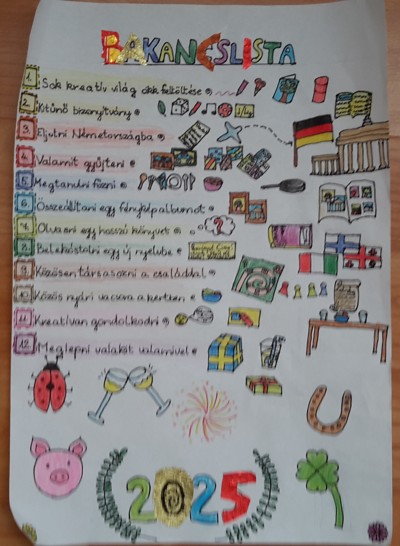 BAKANCSLISTA
1. Sok kreatív világ cikk feltöltése
2. Kitűnő bizonyítvány
3. Eljutni Németországba
4. Valamit gyűjteni
5. Megtanulni főzni
6. Összeállítani egy fényképalbumot
7. Olvasni egy hosszú könyvet
8. Belekóstolni egy új nyelvbe
9. Közösen társasozni a családdal
10. Közös nyári vacsora a kertben
11. Kreatívan gondolkodni
12. Meglepni valakit valamivel
2025